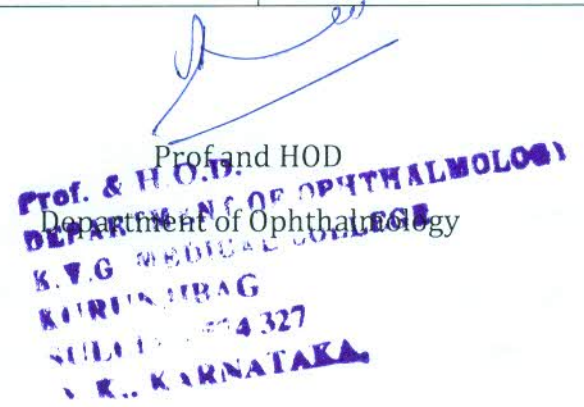 Prof and HOD
Department of Ophthalmology
Prof. & H.O.D.
DEPARTMENT OF OPHTHALMOLOGY
K.V.G MEDICAL COLLEGE
KURUNJIBAG
327
K., KARNATAKA